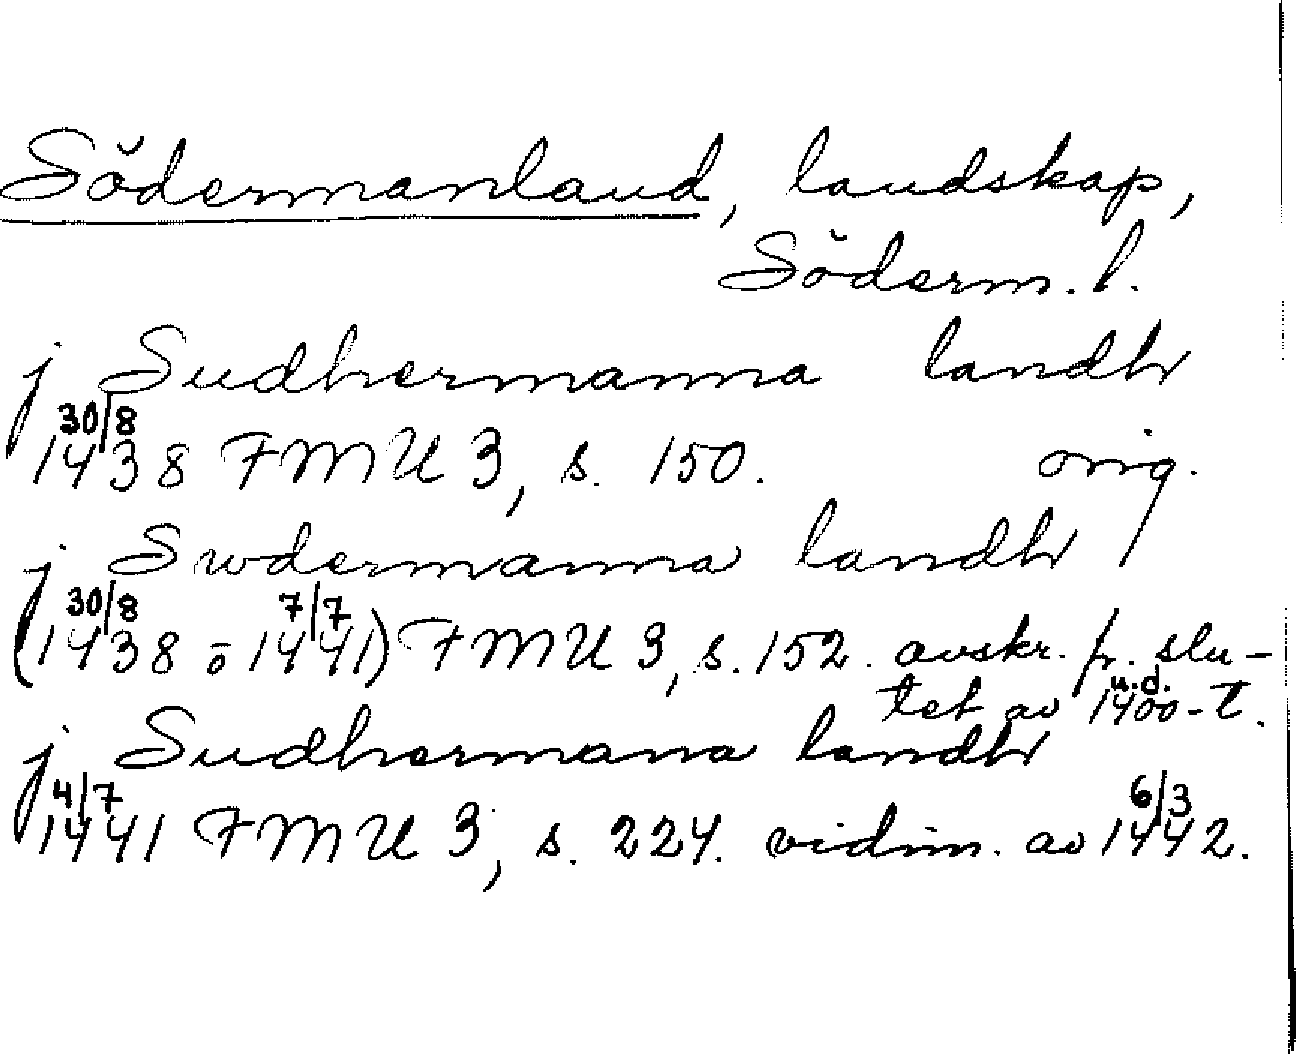 Södermanland, landskap,
Söderm. l.
j Sudhermanna landh
30/8 1438 FMU 3, s. 150. orig.
j Swdermanna landh
(30/8 1438 o 7/7 1441) FMU 3, s. 152. avskr. fr. slu-
tet av u.d. 1400-t.
j Sudhermana landh
4/7 1441 FMU 3, s. 224. vidim. av 6/3 1442.